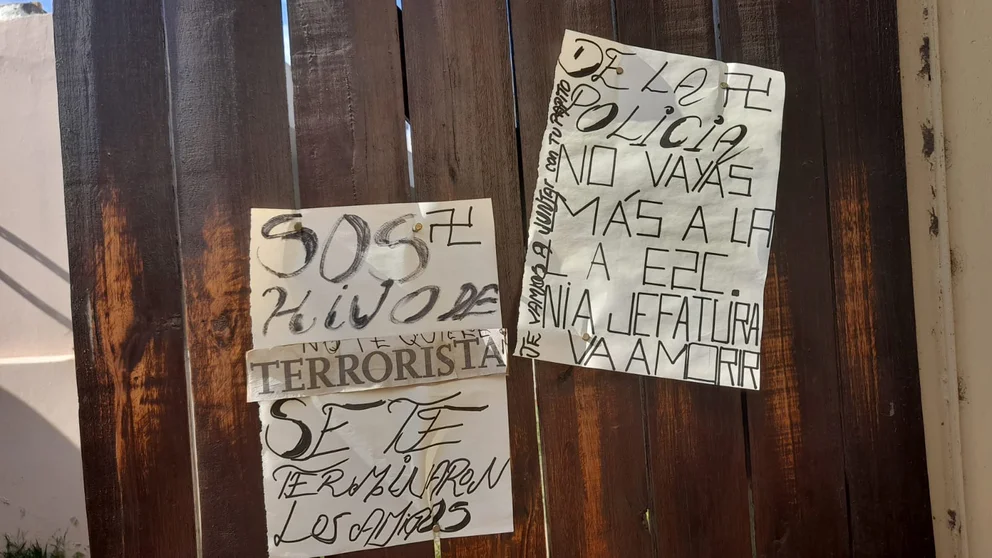 SOS 卍
HIJO DE
NO TE QUIERE
TERRORISTA
SE TE
TERMINARON
LOS AMIGOS
DE LA 卍
POLICIA
NO VAYAS
MÁS A LA
A EZC.
NIA JEFATURA
VA A MORIR
TE VAMOS A JUNTAR CON TU PAPITO